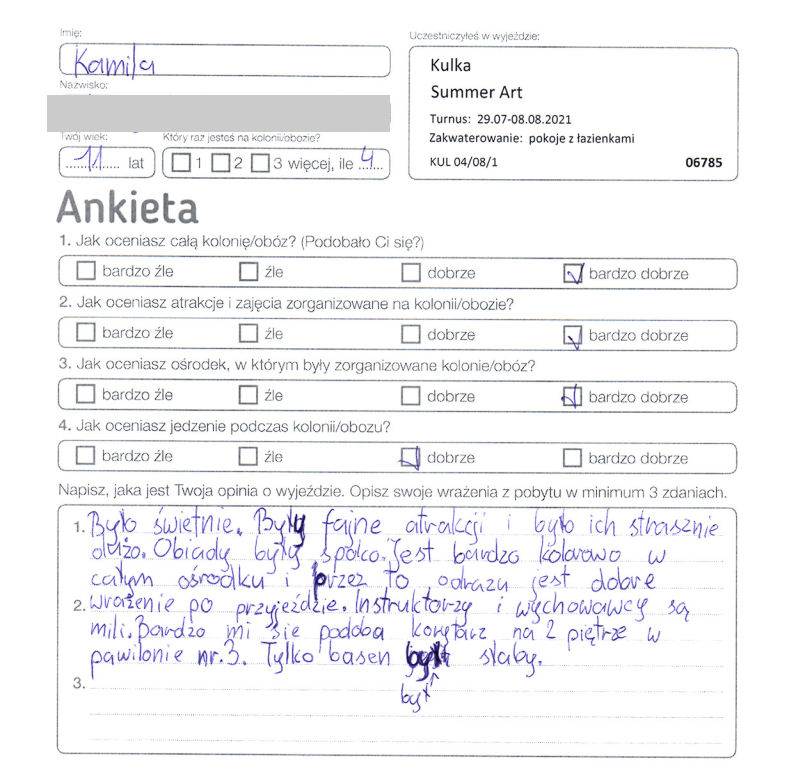 Imię:
Kamila
Nazwisko:
Twój wiek:
11 lat
Który raz jesteś na kolonii/obozie?
1 2 3 więcej, ile 4
Uczestniczyłeś w wyjeździe:
Kulka
Summer Art
Turnus: 29.07-08.08.2021
Zakwaterowanie: pokoje z łazienkami
KUL 04/08/1 06785
Ankieta
1. Jak oceniasz całą kolonię/obóz? (Podobało Ci się?)
bardzo źle źle dobrze bardzo dobrze
2. Jak oceniasz atrakcje i zajęcia zorganizowane na kolonii/obozie?
bardzo źle źle dobrze bardzo dobrze
3. Jak oceniasz ośrodek, w którym były zorganizowane kolonie/obóz?
bardzo źle źle dobrze bardzo dobrze
4. Jak oceniasz jedzenie podczas kolonii/obozu?
bardzo źle źle dobrze bardzo dobrze
Napisz, jaka jest Twoja opinia o wyjeździe. Opisz swoje wrażenia z pobytu w minimum 3 zdaniach.
1. Było świetnie. Były fajne atrakcji i było ich strasznie
dużo. Obiady były spoko. Jest bardzo kolorowo w
całym ośrodku i przez to odrazu jest dobre
2. wrażenie po przyjeździe. Instruktorzy i wychowawcy są
mili. Bardzo mi sie podoba korytarz na 2 piętrze w
pawilonie nr.3. Tylko basen słaby.
3. był